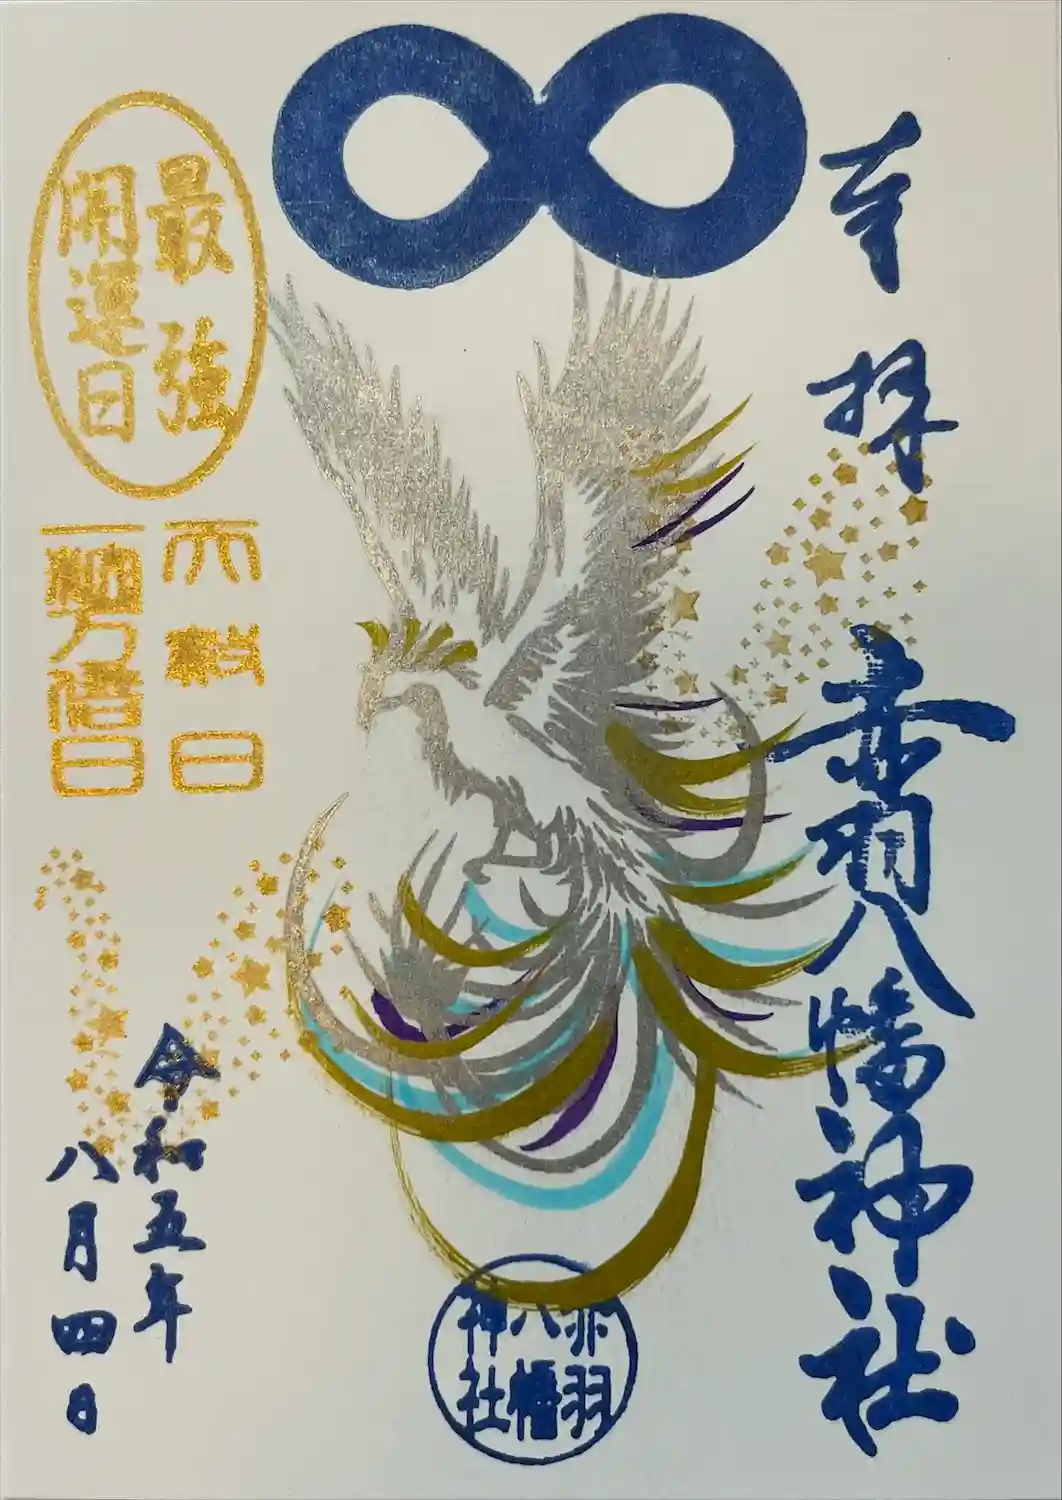 奉拝
赤羽八幡神社
最強
開運日
大穀日
一粒万倍日
令和五年
八月四日
赤羽
八幡
神社